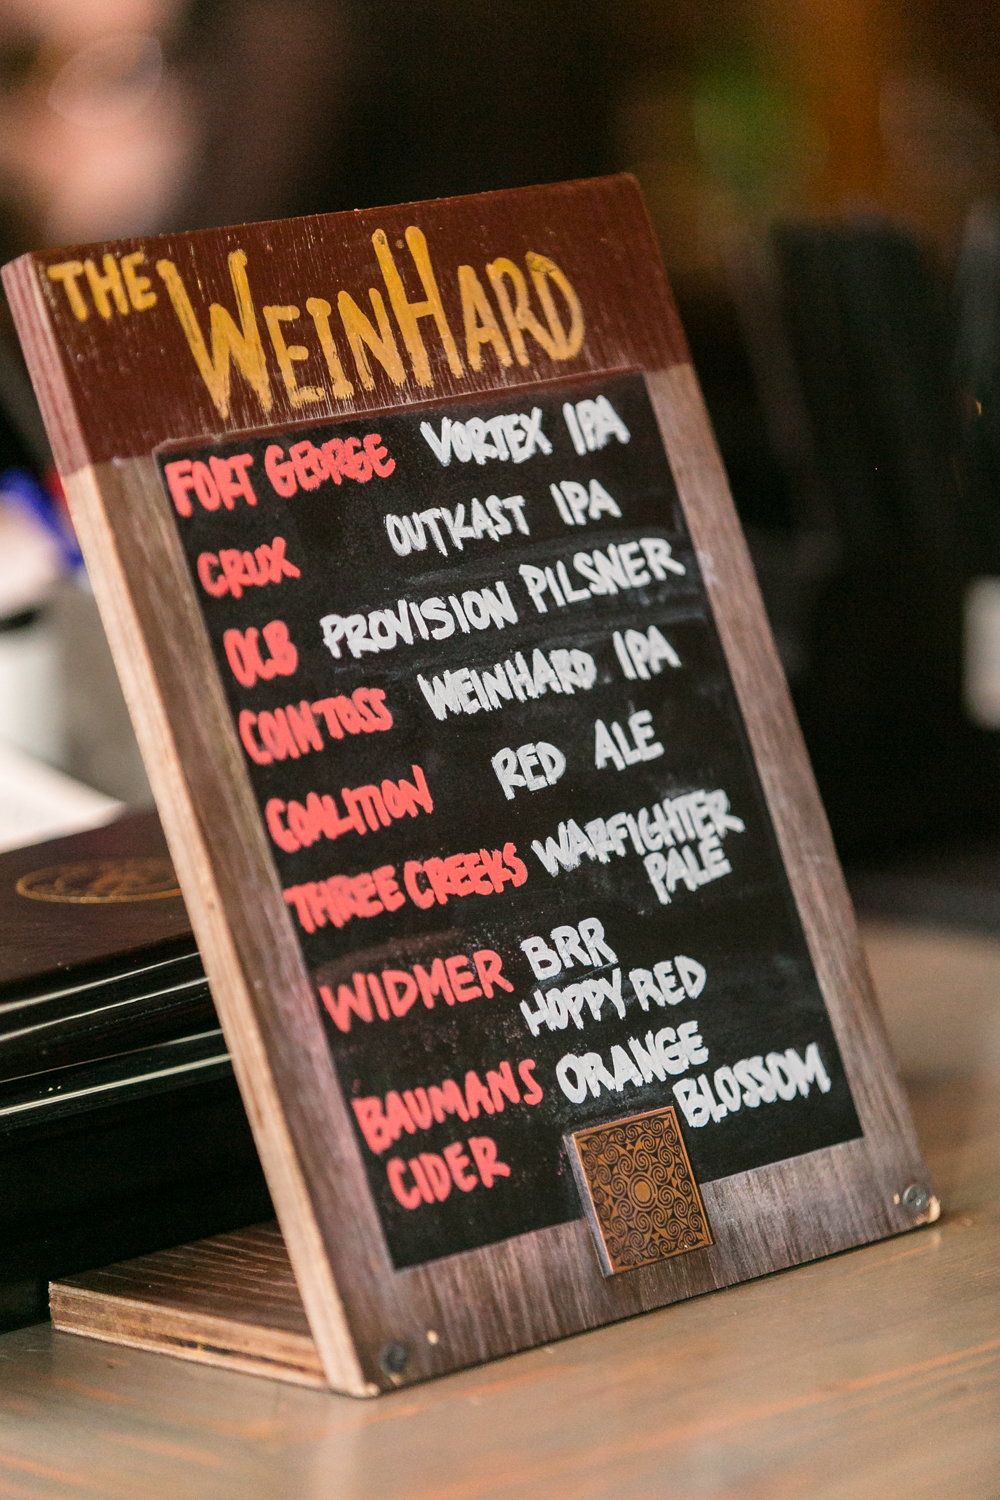 THE WEINHARD
FORT GEORGE VORTEX IPA
CRUX OUTKAST IPA
OCB PROVISION PILSNER
COIN TOSS WEINHARD IPA
COALITION RED ALE
THREE CREEKS WARFIGHTER
PALE
WIDMER BRR
HOPPY RED
BAUMANS ORANGE
BLOSSOM
CIDER